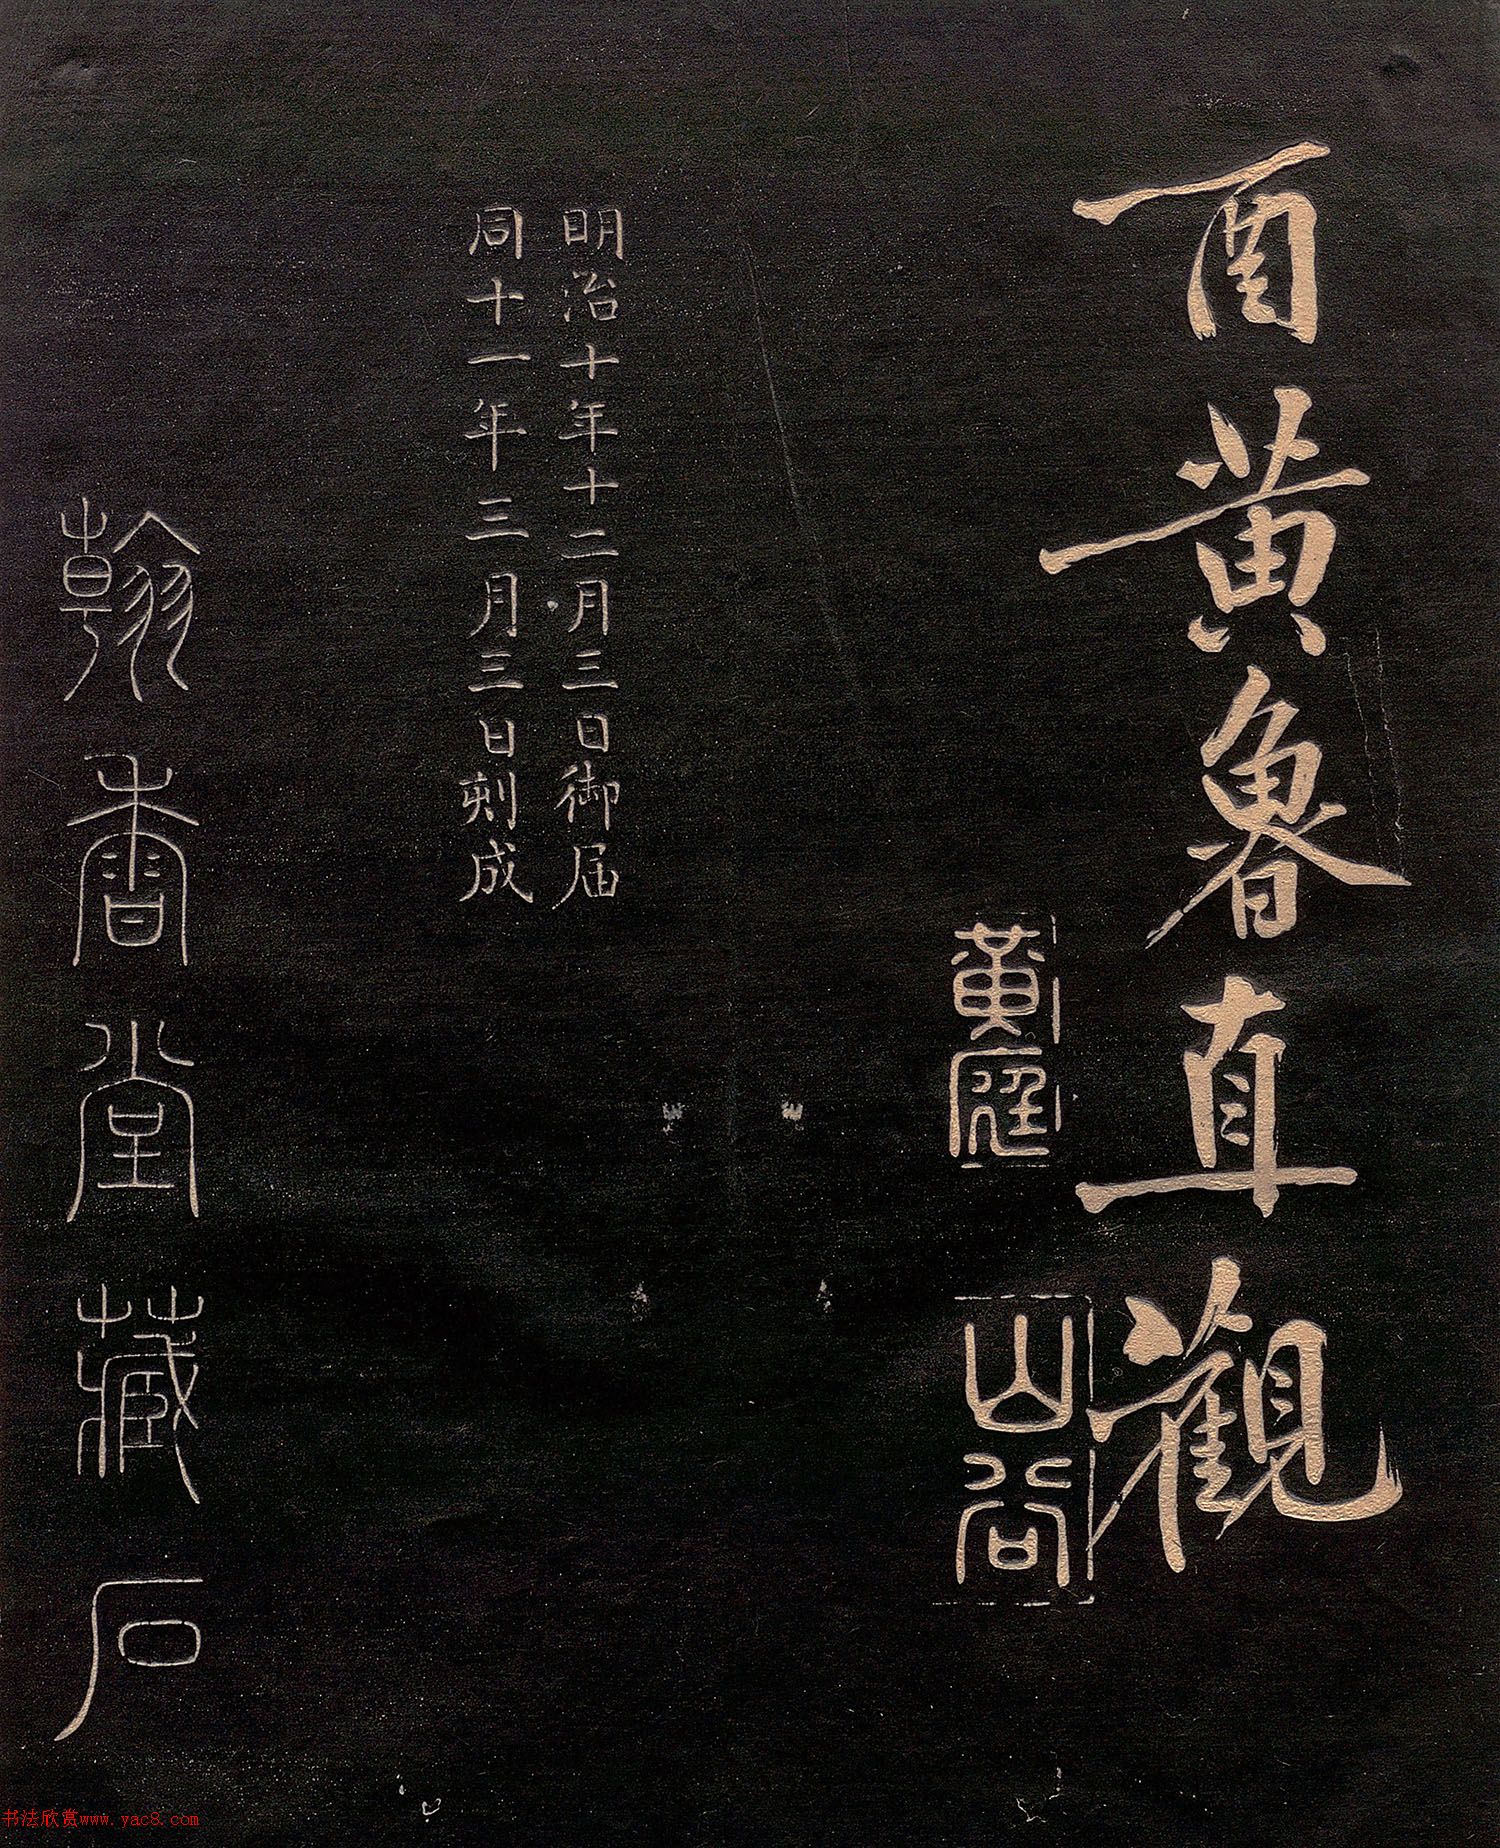 酉黄魯直觀
黄庭
山谷
明治十年十二月三日御届
同十一年三月三日刻成
翰香堂藏石
书法欣赏www.yac8.com